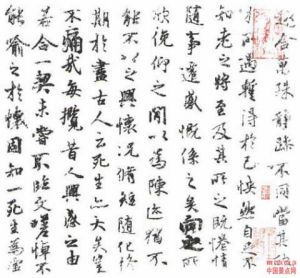 趣舍萬殊靜躁不同當其欣
於所遇蹔得於己怏然自足不
知老之將至及其所之既惓情
隨事遷感慨係之矣向之所
欣俛仰之閒以為陳迹猶不
能不以之興懷況脩短隨化終
期於盡古人云死生亦大矣豈
不痛哉每攬昔人興感之由
若合一契未嘗不臨文嗟悼不
能喻之於懷固知一死生為虛
中国景点网